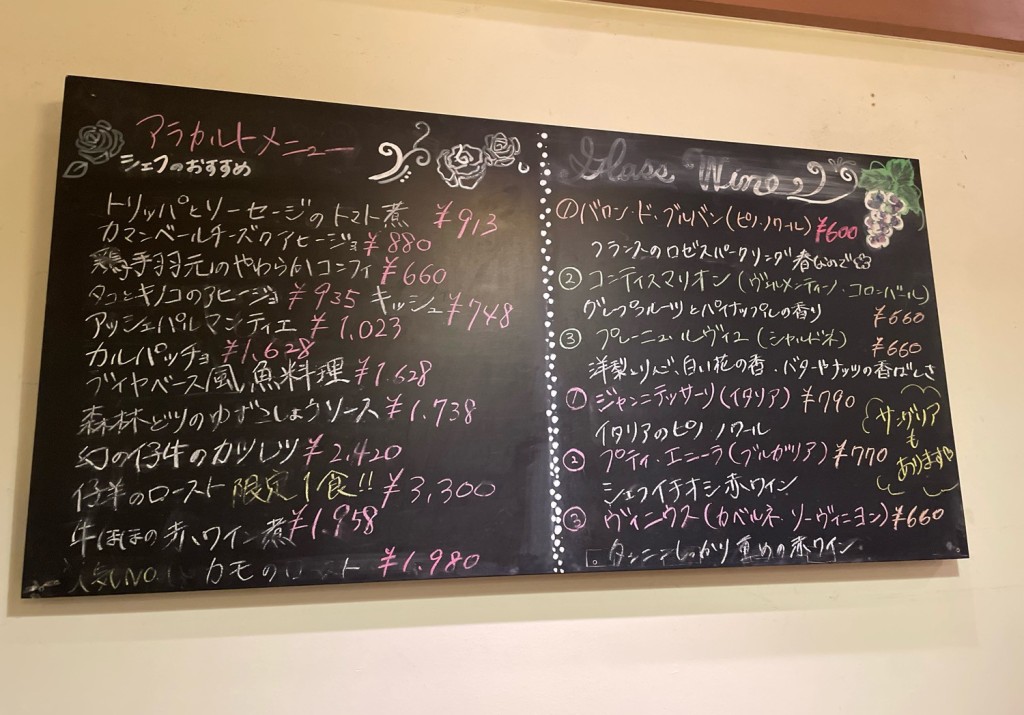 アラカルトメニュー
シェフのおすすめ
トリッパとソーセージのトマト煮 ¥913
カマンベールチーズのアヒージョ ¥880
鶏手羽元のやわらかコンフィ ¥660
タコとキノコのアヒージョ ¥935 キッシュ ¥748
アッシェパルマンティエ ¥1,023
カルパッチョ ¥1,628
ブイヤベース風魚料理 ¥1,628
森林どりのゆずこしょうソース ¥1,738
幻の仔牛のカツレツ ¥2,420
仔羊のロースト 限定1食!! ¥3,300
牛ほほの赤ワイン煮 ¥1,958
人気NO.1 カモのロースト ¥1,980
Glass Wine
① バロン・ド・ブルバン(ピノ・ノワール) ¥600
フランスのロゼスパークリング 春なので
② コンティスマリオン(ヴェルメンティーノ・コロンバール)
グレープフルーツとパイナップルの香り ¥660
③ プレーニュ・ルヴィユ(シャルドネ) ¥660
洋梨とりんご、白い花の香・バターやナッツの香ばしさ
① ジャンニテッサーリ(イタリア) ¥790
イタリアのピノ ノワール
② プティ・エニーラ(ブルガリア) ¥770
シェフイチオシ赤ワイン
③ ヴィニウス(カベルネ・ソーヴィニヨン) ¥660
タンニンしっかり重めの赤ワイン
サングリア
も
あります